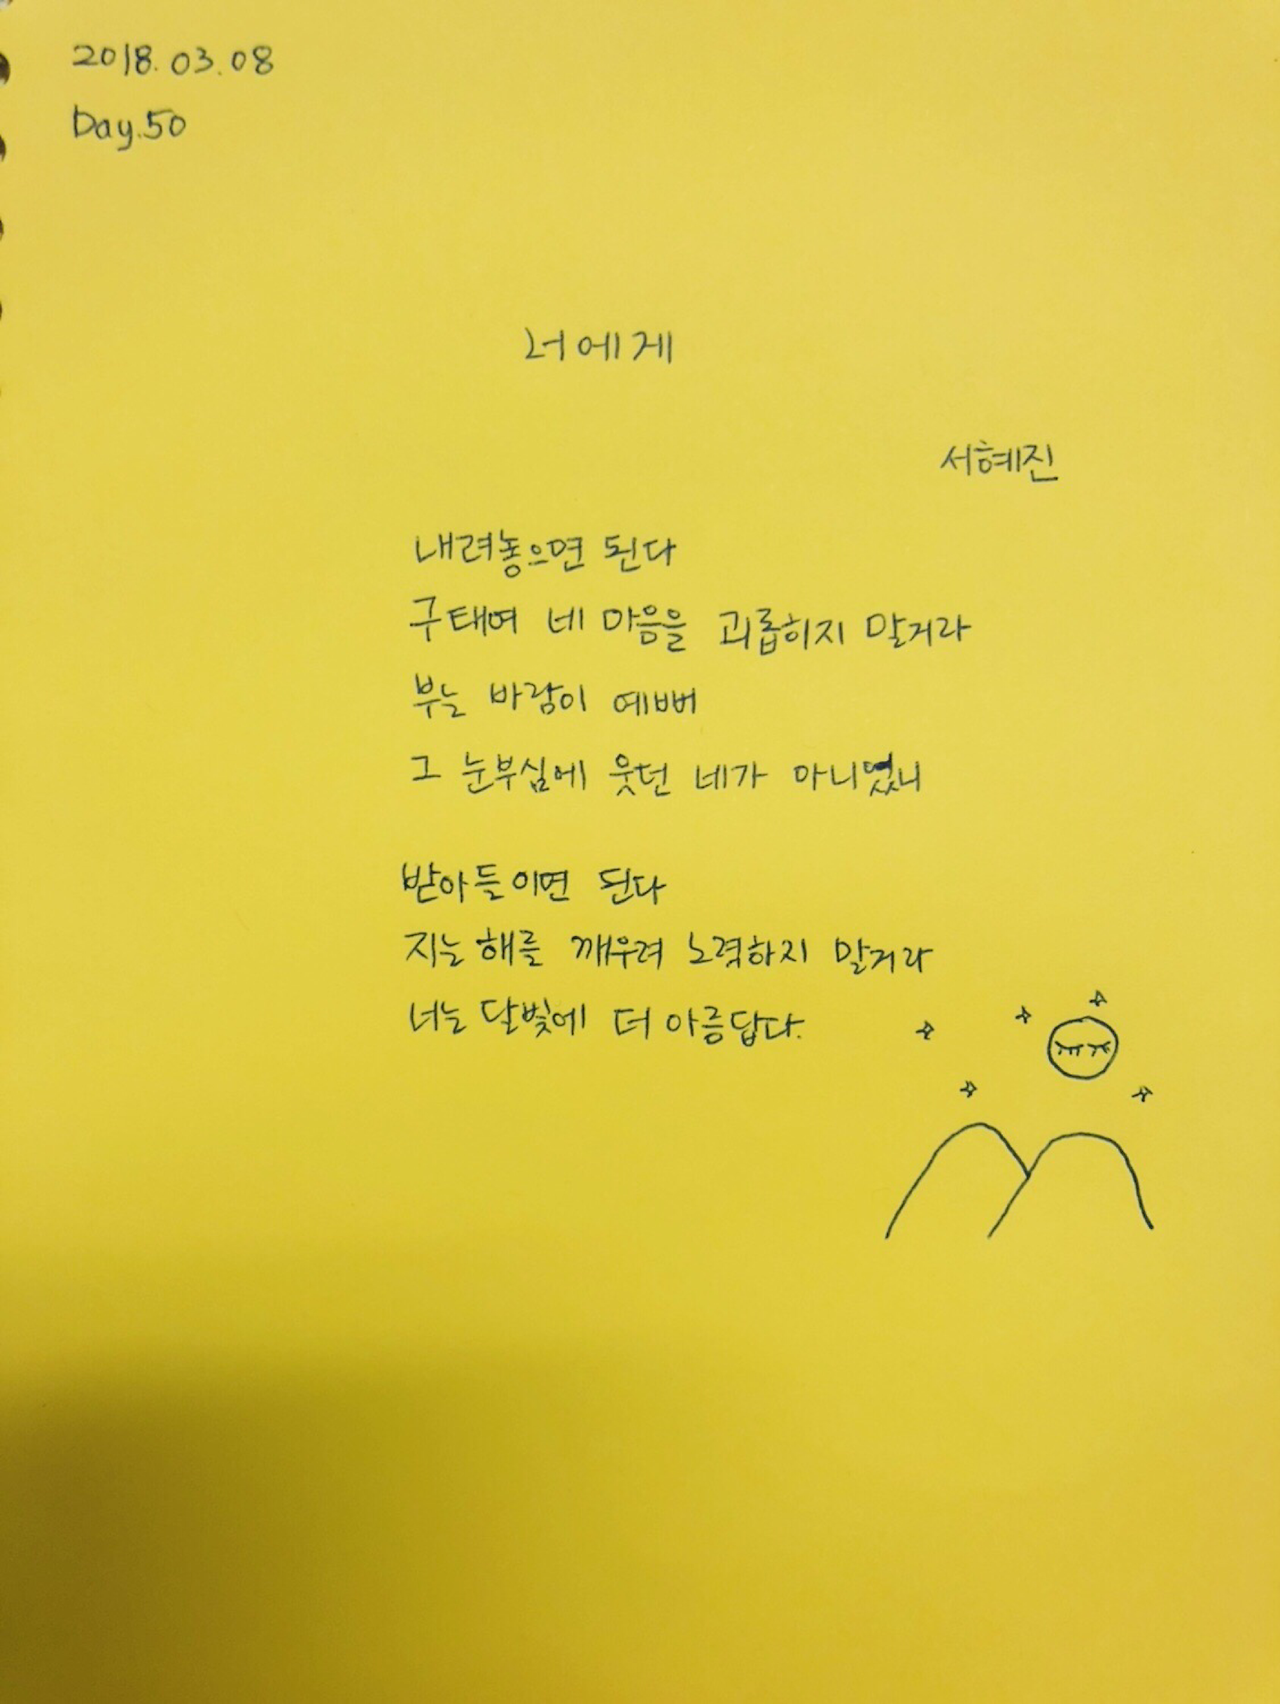 2018.03.08
Day.50
너에게
서혜진
내려놓으면 된다
구태여 네 마음을 괴롭히지 말거라
부는 바람이 예뻐
그 눈부심에 웃던 네가 아니었니
받아들이면 된다
지는 해를 깨우려 노력하지 말거라
너는 달빛에 더 아름답다.